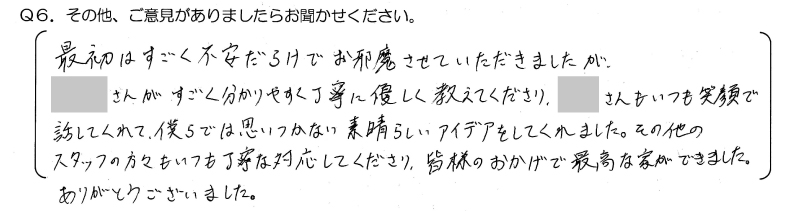 Q6．その他、ご意見がありましたらお聞かせください。
最初はすごく不安だらけでお邪魔させていただきましたが、
さんがすごく分かりやすく丁寧に優しく教えてくださり、さんもいつも笑顔で
話してくれて、僕らでは思いつかない素晴らしいアイデアをしてくれました。その他の
スタッフの方々もいつも丁寧な対応してくださり、皆様のおかげで最高な家ができました。
ありがとうございました。